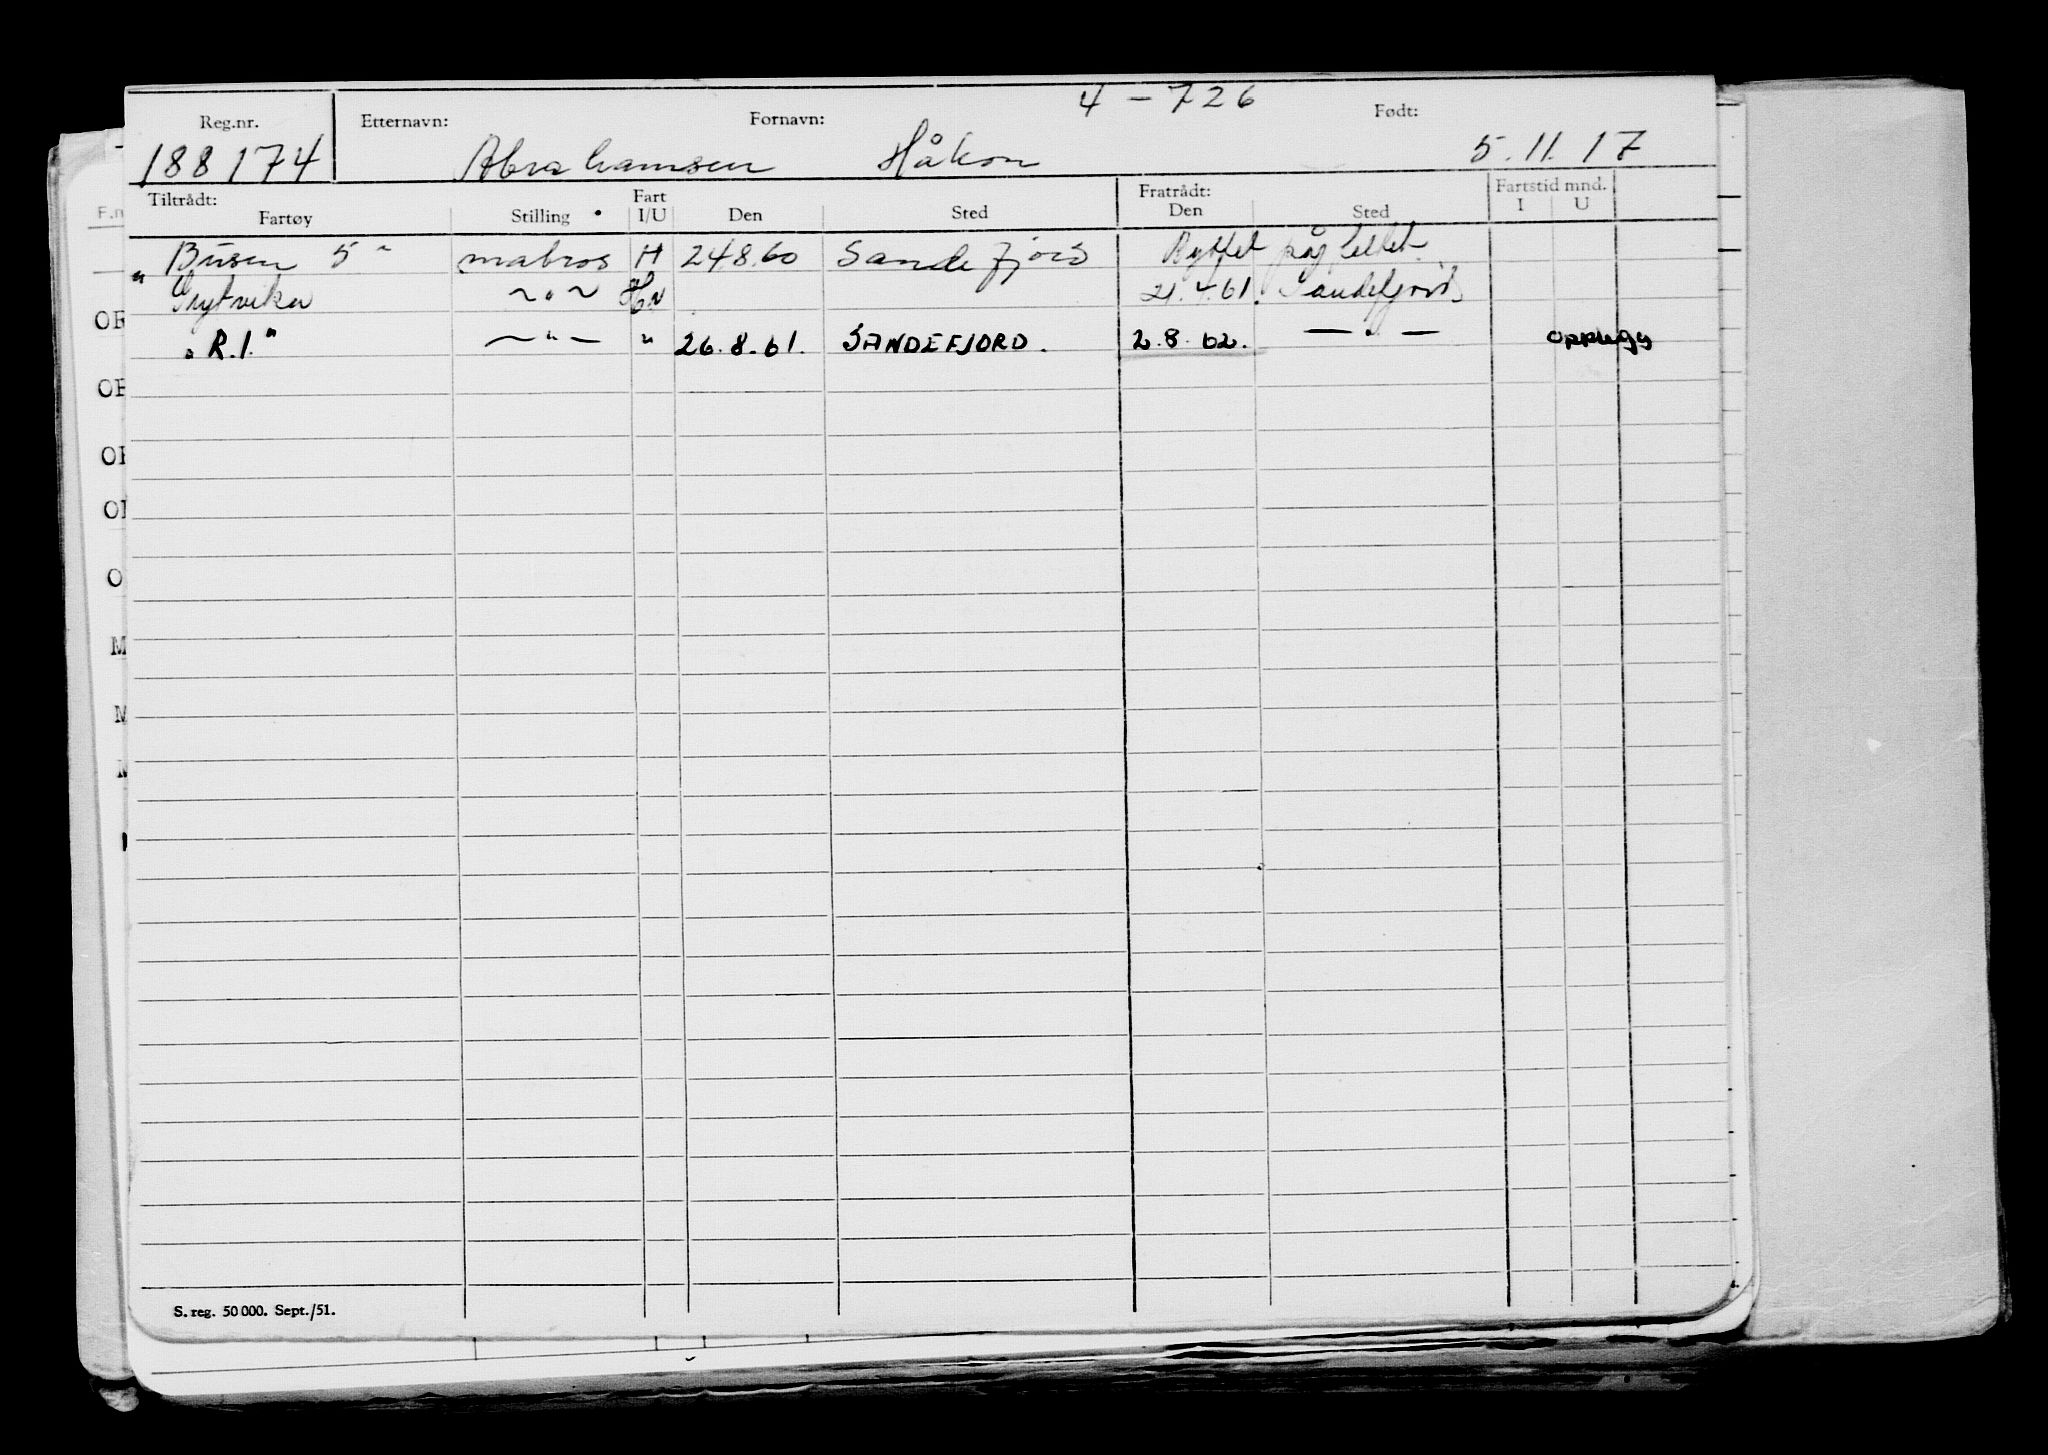 4 - 726
Reg.nr. Etternavn: Fornavn: Født:
188174 Abrahamsen Håkon 5.11.17
Tiltrådt: Fart Fratrådt: Fartstid mnd.
Fartøy Stilling I/U Den Sted Den Sted I U
" Busen 5 " matros H 24.8.60 Sandefjord Byttet på feltet.
Grytviken ~ " ~ 21.4.61. Sandefjord
" R.1. " — " — " 26.8.61. SANDEFJORD. 2.8.62. — " — opplegg
S. reg. 50 000. Sept./51.